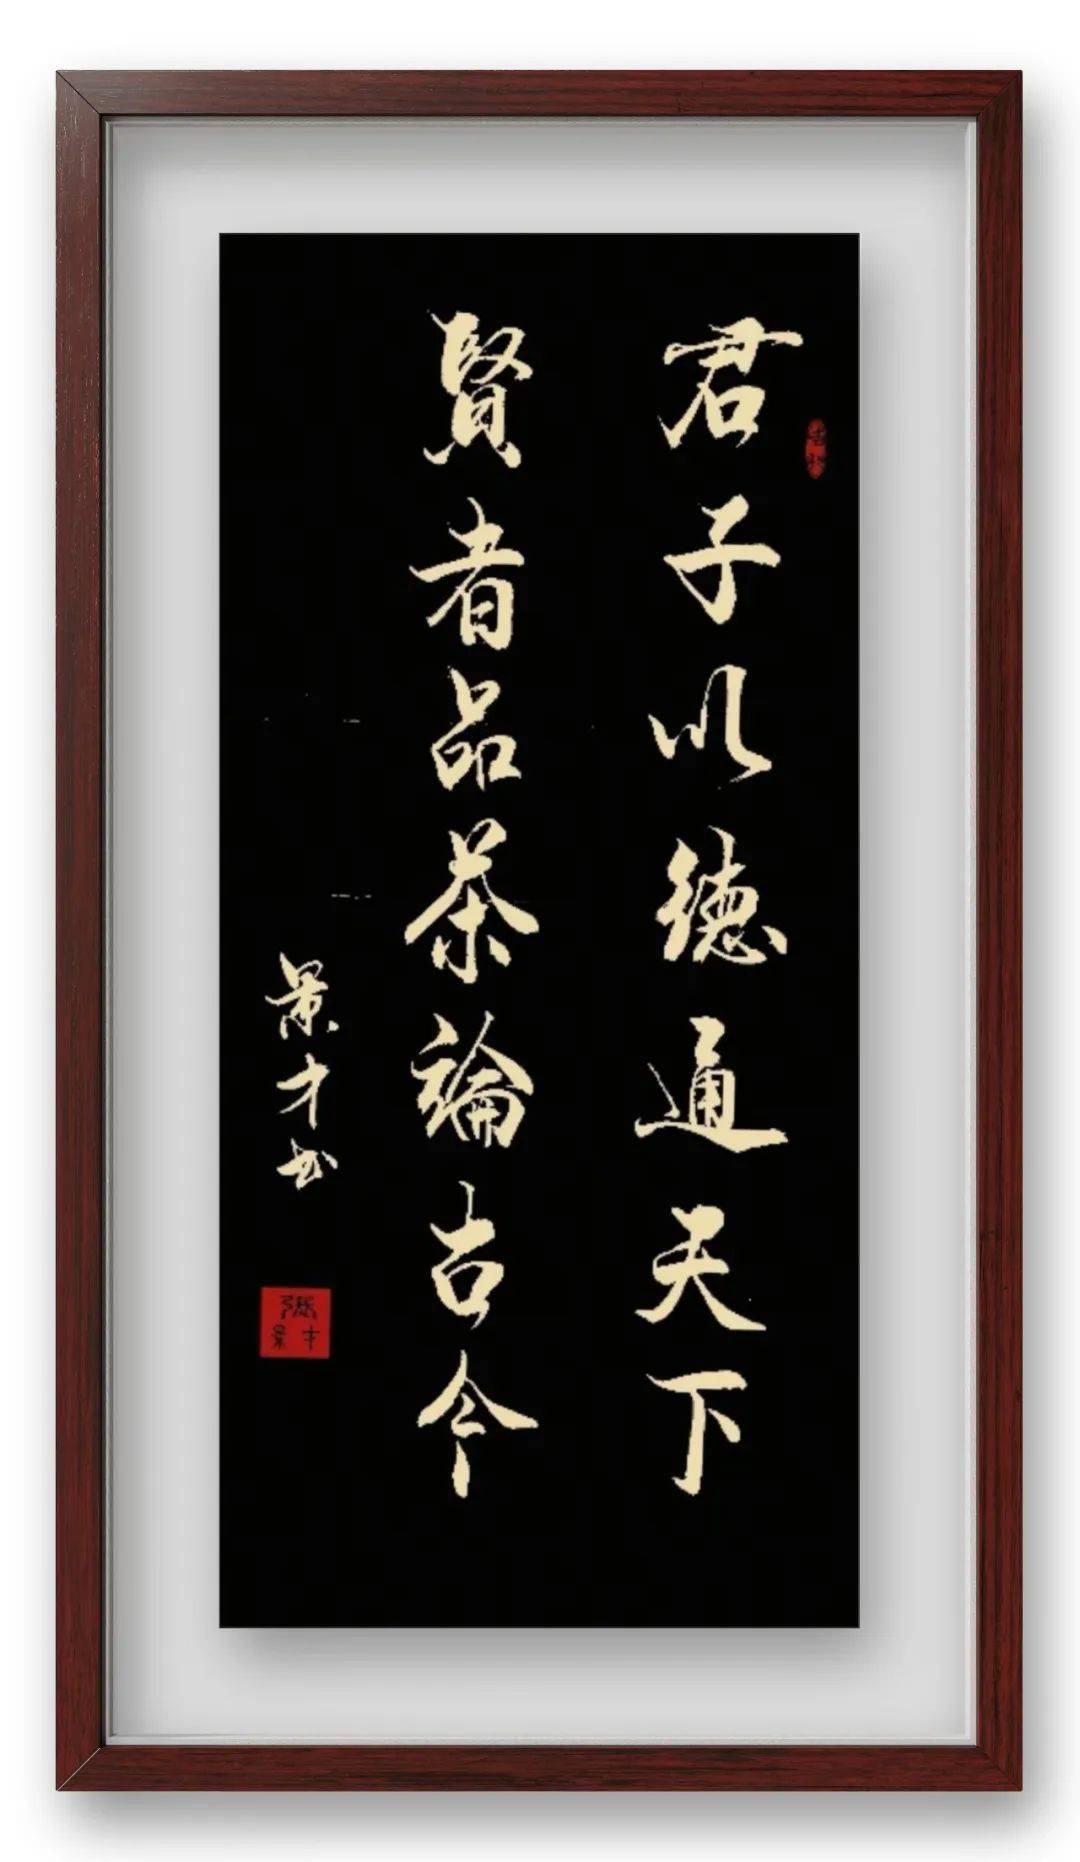 君子以德通天下
賢者品茶論古今
景才书
張景才